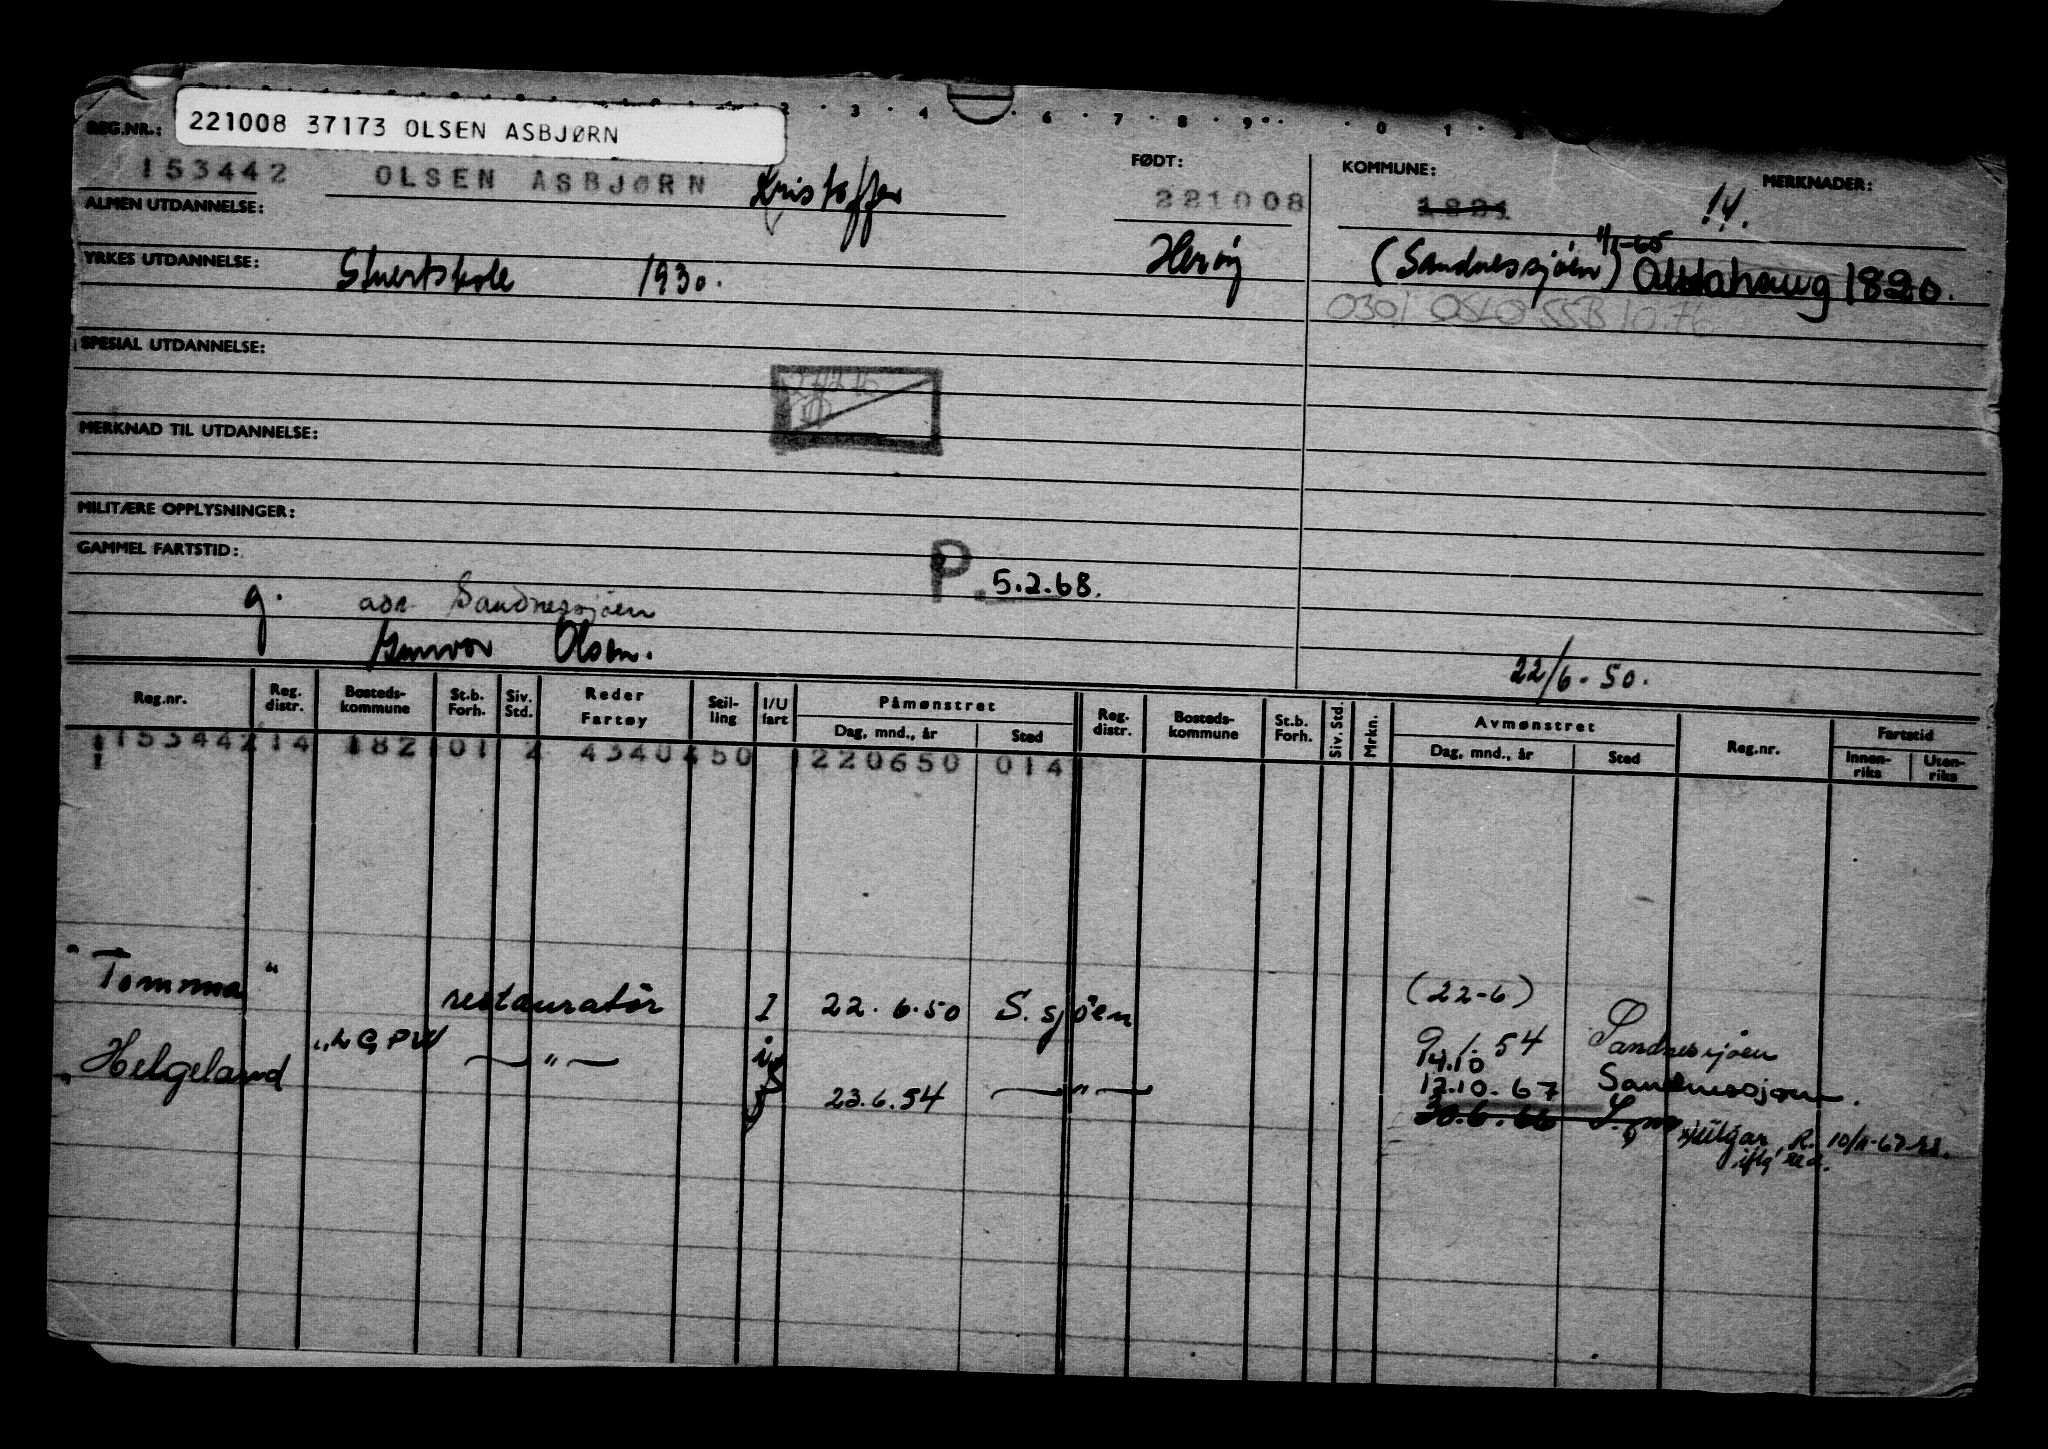 221008 37173 OLSEN ASBJØRN
REG.NR.: FØDT: KOMMUNE: MERKNADER:
153442 OLSEN ASBJØRN Kristoffer 221008 14.
ALMEN UTDANNELSE: Herøy (Sandnessjøen) 1/1-65 Alstahaug 1820.
YRKES UTDANNELSE: Stuertskole 1930.
0301 OSLO SSB 10.76
SPESIAL UTDANNELSE:
MERKNAD TIL UTDANNELSE:
MILITÆRE OPPLYSNINGER:
GAMMEL FARTSTID: P. 5.2.68.
g. adr. Sandnessjøen
Gunvor Olsen.
22/6-50.
Reg.nr. Reg. distr. Bosteds-kommune St.b. Forh. Siv. Std. Reder Fartøy Stil-ling I/U fart Påmønstret Dag, mnd., år Sted Reg. distr. Bosteds-kommune St.b. Forh. Siv. Std. Mrkn. Avmønstret Dag, mnd., år Sted Reg.nr. Fartstid Innen-riks Uten-riks
153442 14 182 01 2 4340 50 220650 014
"Tomma" restauratør I 22.6.50 S.sjöen (22-6)
9.1.54 Sandnessjøen
"Helgeland" LGPW — " — 23.6.54 — " — 14.10
12.10.67 Sandnessjøen.
30.6.66
10/11-67